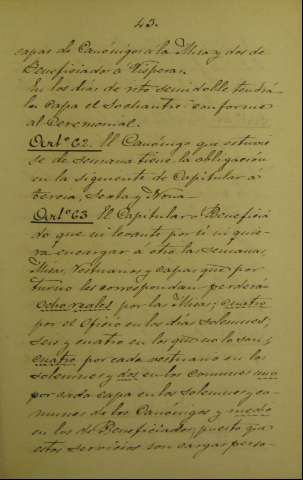 43.
capas de Canónigos a la Misa y dos de
Beneficiado a Vísperas.
En los días de rito semidoble tendrá
la capa el Sochantre conforme
al Ceremonial.
Artº 62. El Canónigo que estuvie
se de semana tiene la obligación
en la siguiente de Capitular á
tercia, Sexta y Nona
Artº 63 El Capitular ó Beneficia
do que ni levante por sí ni quie
ra encargar á otro las semanas,
Misas, vestuarios y capas que por
turno les correspondan perderán
ocho reales por las Misas; cuatro
por el Oficio en los días solemnes,
seis y cuatro en los que no lo son;
cuatro por cada vestuario en los
solemnes y dos en los comunes una
por cada capa en los solemnes y co
munes de los Canónigos y medio
en los de Beneficiados, puesto que
estos servicios son cargas perso-